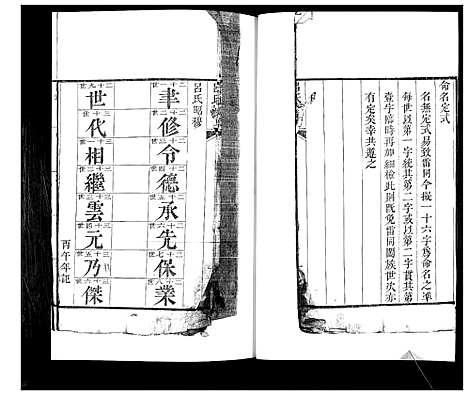 命名定式
名無定式易致雷同今擬一十六字爲命名之準
每世以第一字統其第二字或以第二字貫其第
壹字臨時再加細檢此則既免雷同闔族世次亦
有定矣幸共遵之
呂氏昭穆
二十一世 聿
二十二世 修
二十三世 令
二十四世 德
二十五世 承
二十六世 先
二十七世 保
二十八世 業
二十九世 世
三十世 代
三十一世 相
三十二世 繼
三十三世 雲
三十四世 元
三十五世 乃
三十六世 傑
丙午年記